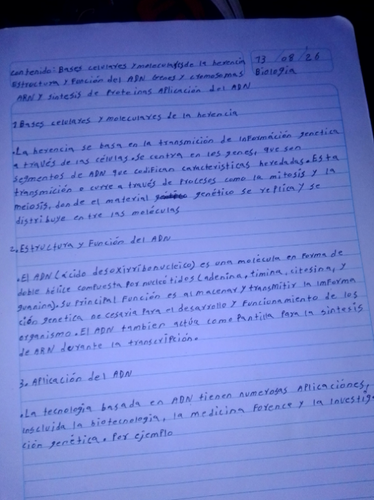 contenido: Bases celulares y moleculares de la herencia
Estructura y Función del ADN Genes y cromosomas
ARN y sintesis de Proteinas Aplicación del ADN
13/08/26
Biología
1. Bases celulares y moleculares de la herencia
• La herencia se basa en la transmición de información genetica
a través de las células. se centra en los genes, que son
segmentos de ADN que codifican características heredadas. Esta
transmición ocurre a través de Procesos como la mitosis y la
meiosis, donde el material genético se replica y se
distribuye entre las moléculas
2. Estructura y Función del ADN
• El ADN (ácido desoxirribonucleico) es una molécula en forma de
doble hélice compuesta por nucleótidos (adenina, timina, citosina, y
guanina). su Principal Función es almacenar y transmitir la informa
ción genetica necesaria Para el desarrollo y Funcionamiento de los
organismo. El ADN tambien actúa como Plantilla Para la sintesis
de ARN durante la transcripción.
3. Aplicación del ADN
• La tecnologia basada en ADN tienen numerosas Aplicaciónes,
incluida la biotecnología, la medicina Forence y la investiga
ción genética. Por ejemplo